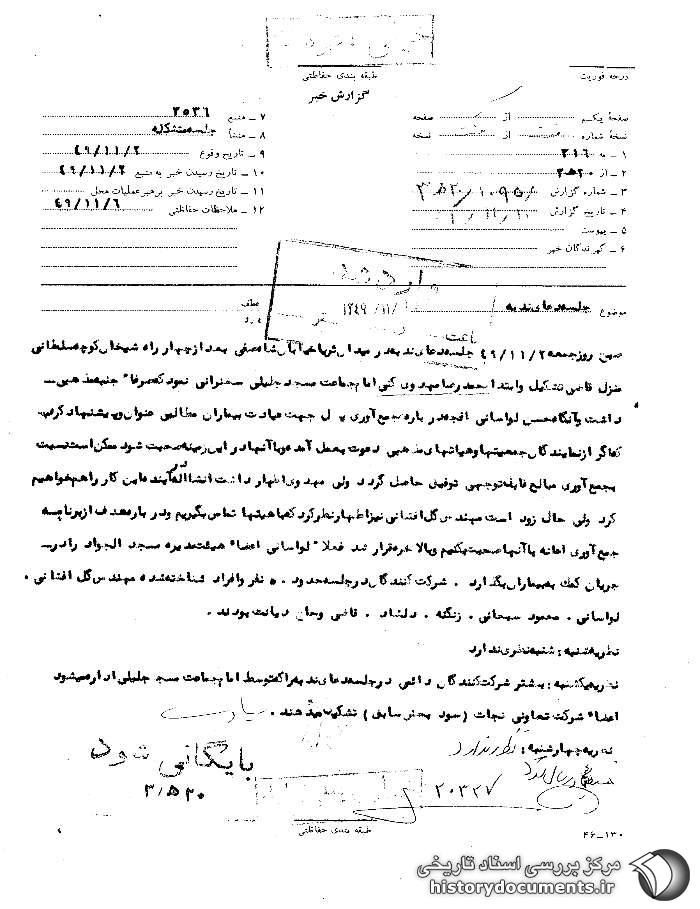 طبقه بندی حفاظتی
درجه فوریت
گزارش خبر
صفحه یکم از صفحه
نسخه شماره از نسخه
۱ ـ به ۳۱۶
۲ ـ از ۲۰ه۳
۳ ـ شماره گزارش
۴ ـ تاریخ گزارش
۵ ـ پیوست
۶ ـ گیرندگان خبر
۷ ـ منبع ۲۵۳۶
۸ ـ منشأ جلسه متشکله
۹ ـ تاریخ وقوع ۴۹/۱۱/۲
۱۰ ـ تاریخ رسیدن خبر به منبع ۴۹/۱۱/۲
۱۱ ـ تاریخ رسیدن خبر برهبر عملیات محل
۱۲ ـ ملاحظات حفاظتی ۴۹/۱۱/۶
موضوع جلسه دعای ندبه
عطف
صبح روز جمعه ۴۹/۱۱/۲ جلسه دعای ندبه در میدان ثریا خیابان شاه صفی بعد از چهار راه شیخان کوچه سلطانی
منزل قاضی تشکیل و ابتدا محمد رضا مهدوی کنی امام جماعت مسجد جلیلی سخنرانی نمود که صرفاً جنبه مذهبی
داشت و آنگاه محسن لواسانی افجه درباره جمع آوری پول جهت عیادت بیماران مطالبی عنوان و پیشنهاد کرد
که اگر از نمایندگان جمعیتها و هیاتهای مذهبی دعوت بعمل آمده و با آنها در این زمینه صحبت شود ممکن است نسبت
بجمع آوری مبالغ قابل توجهی توفیق حاصل گردد ولی مهدوی اظهار داشت انشااله در آینده این کار را هم خواهیم
کرد ولی حال زود است مهندس گل افشانی نیز اظهار نظر کرد که با هیئتها تماس بگیریم و درباره هدف از برنامه
جمع آوری اعانه با آنها صحبت بکنیم و بالاخره قرار شد فعلاً لواسانی اعضاء هیئت مدیره مسجد الجواد را در
جریان کمک به بیماران بگذارد . شرکت کنندگان در جلسه حدود ۵۰ نفر و افراد شناخته شده مهندس گل افشانی .
لواسانی . محمود سبحانی . زنگنه . دلشاد . قاضی و جان دیانت بودند .
نظریه شنبه : شنبه نظری ندارد
نظریه یکشنبه : بیشتر شرکت کنندگان دائمی در جلسه دعای ندبه را که توسط امام جماعت مسجد جلیلی اداره میشود
اعضاء شرکت تعاونی نجات ( سود بخش سابق ) تشکیل میدهند .
نظریه چهارشنبه : نظری ندارد
بایگانی شود
۲۰ه۳
۲۰۳۲۷
طبقه بندی حفاظتی
۴۶ـ۱۳۰
مرکز بررسی اسناد تاریخی
historydocuments.ir